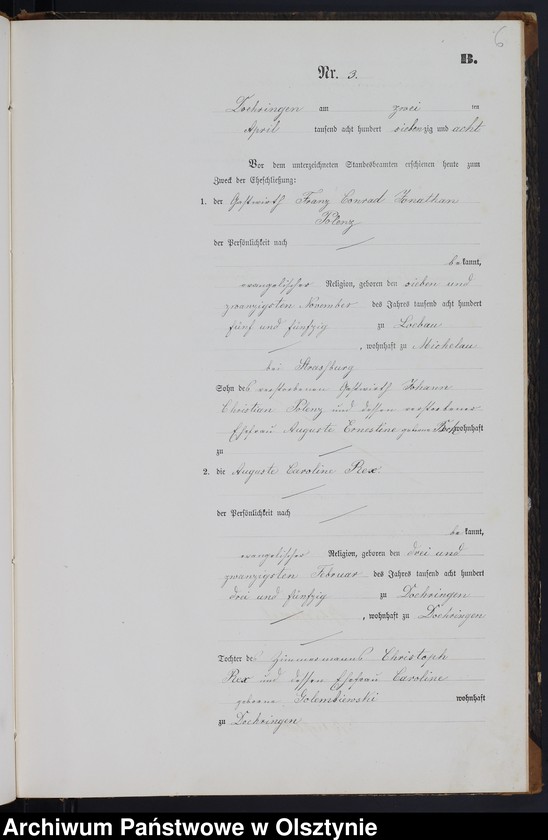 6
B.
Nr. 3.
Doehringen am zwei ten
April tausend acht hundert siebenzig und acht
Vor dem unterzeichneten Standesbeamten erschienen heute zum
Zweck der Eheschließung:
1. der Gastwirth Franz Conrad Jonathan
Polenz
der Persönlichkeit nach
bekannt,
evangelischer Religion, geboren den sieben und
zwanzigsten November des Jahres tausend acht hundert
fünf und fünfzig zu Loebau
, wohnhaft zu Michelau
bei Strassburg
Sohn des verstorbenen Gastwirth Johann
Christian Polenz und dessen verstorbenen
Ehefrau Auguste Ernestine geborne wohnhaft
zu
2. die Auguste Caroline Rex
der Persönlichkeit nach
bekannt,
evangelischer Religion, geboren den drei und
zwanzigsten Februar des Jahres tausend acht hundert
drei und fünfzig zu Doehringen
, wohnhaft zu Doehringen
Tochter des Zimmermanns Christoph
Rex und dessen Ehefrau Caroline
geborne Golembiewski wohnhaft
zu Doehringen
Archiwum Państwowe w Olsztynie